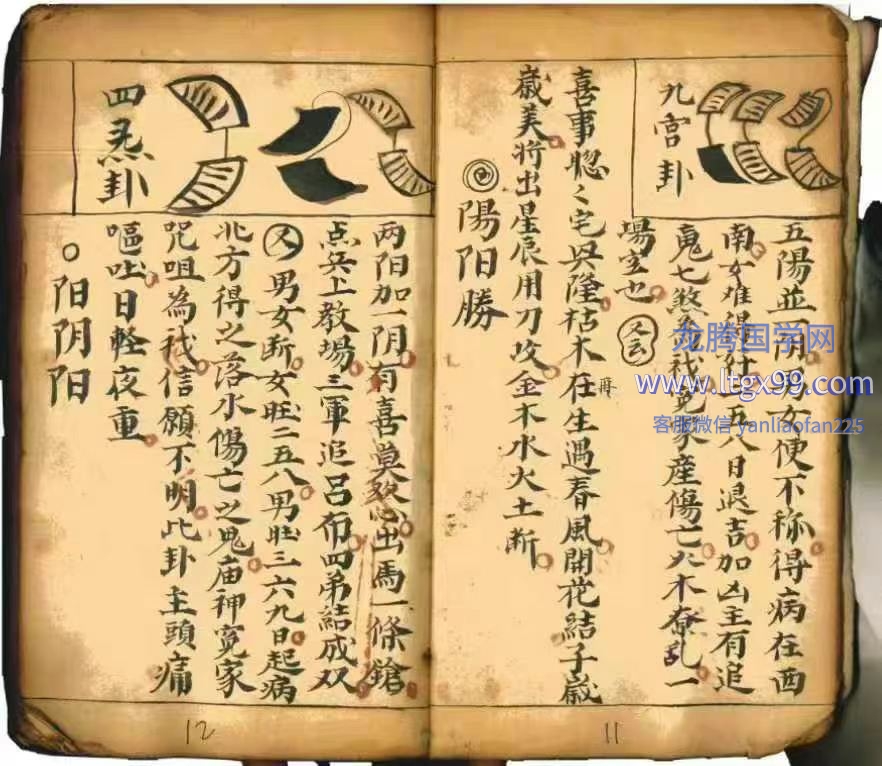 九宫卦
五陽並一阴男女便不称得病在西
南女难得仕二五八日退吉加凶主有追
鬼七煞 産傷亡火木撩乱一
場空也 又云
喜事惚々宅興隆枯木在生遇春風開花結子歳
歳美将出星辰用刀攻金木水火土断
陽阳勝
四 卦
两阳加一阴有喜莫 出馬一條鎗
点兵上教場三軍追吕布四弟結成双
又 男女断女旺二五八男旺三六九日起病
北方得之落水傷亡之鬼庙神寃家
咒咀為 信願不明此卦主頭痛
嘔吐日輕夜重
阳阴阳
11
12
龙腾国学网
www.ltgx99.com
客服微信 yanliaofan225